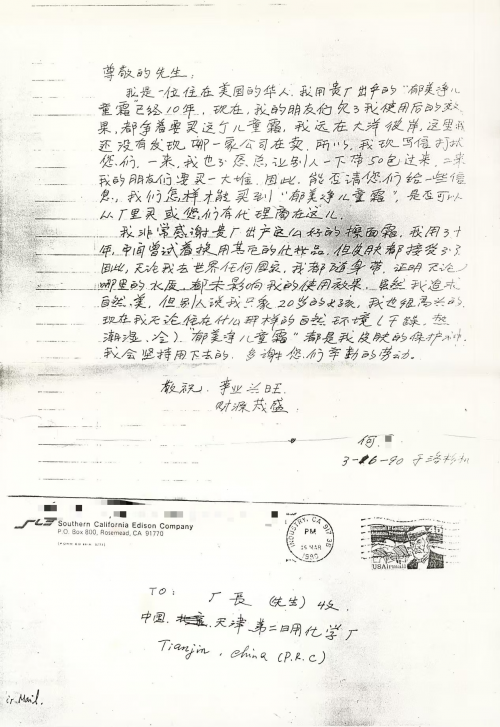 尊敬的先生:
我是一位住在美国的华人,我用贵厂出产的"郁美净儿
童霜"已经10年,现在,我的朋友们见了我使用后的效
果,都争着要买这个儿童霜,我远在大洋彼岸,这里我
还没有发现哪一家公司在卖,所以,我现写信打扰
您们,一来,我也不总让别人一下带50包过来,二来
我的朋友们要买一大堆,因此,能否请您们给一些信
息,我们怎样才能买到"郁美净儿童霜",是否可以
从厂里买或您们有代理商在这儿.
我非常感谢贵厂出产这么好的擦面霜,我用了十
年,中间曾试着换用其它的化妆品,但皮肤都接受不了
因此,无论我去世界任何国家,我都随身带,证明无论
哪里的水质,都未影响我的使用效果,虽然我追求
自然美,但别人说我只象20岁的女孩,我也很高兴的.
现在我无论住在什么样的自然环境(干燥,热
潮湿,冷)"郁美净儿童霜"都是我皮肤的保护神.
我会坚持用下去的.多谢您们辛勤的劳动.
敬祝:事业兴旺
财源茂盛.
何
3-16-90 于洛杉矶
Southern California Edison Company
P.O. Box 800, Rosemead, CA 91770
INDUSTRY, CA
PM
26 MAR
1990
USAirmail
TO: 厂長(先生)收
中国.北京.天津第二日用化学厂
Tianjin, China (P.R.C)
ir Mail.